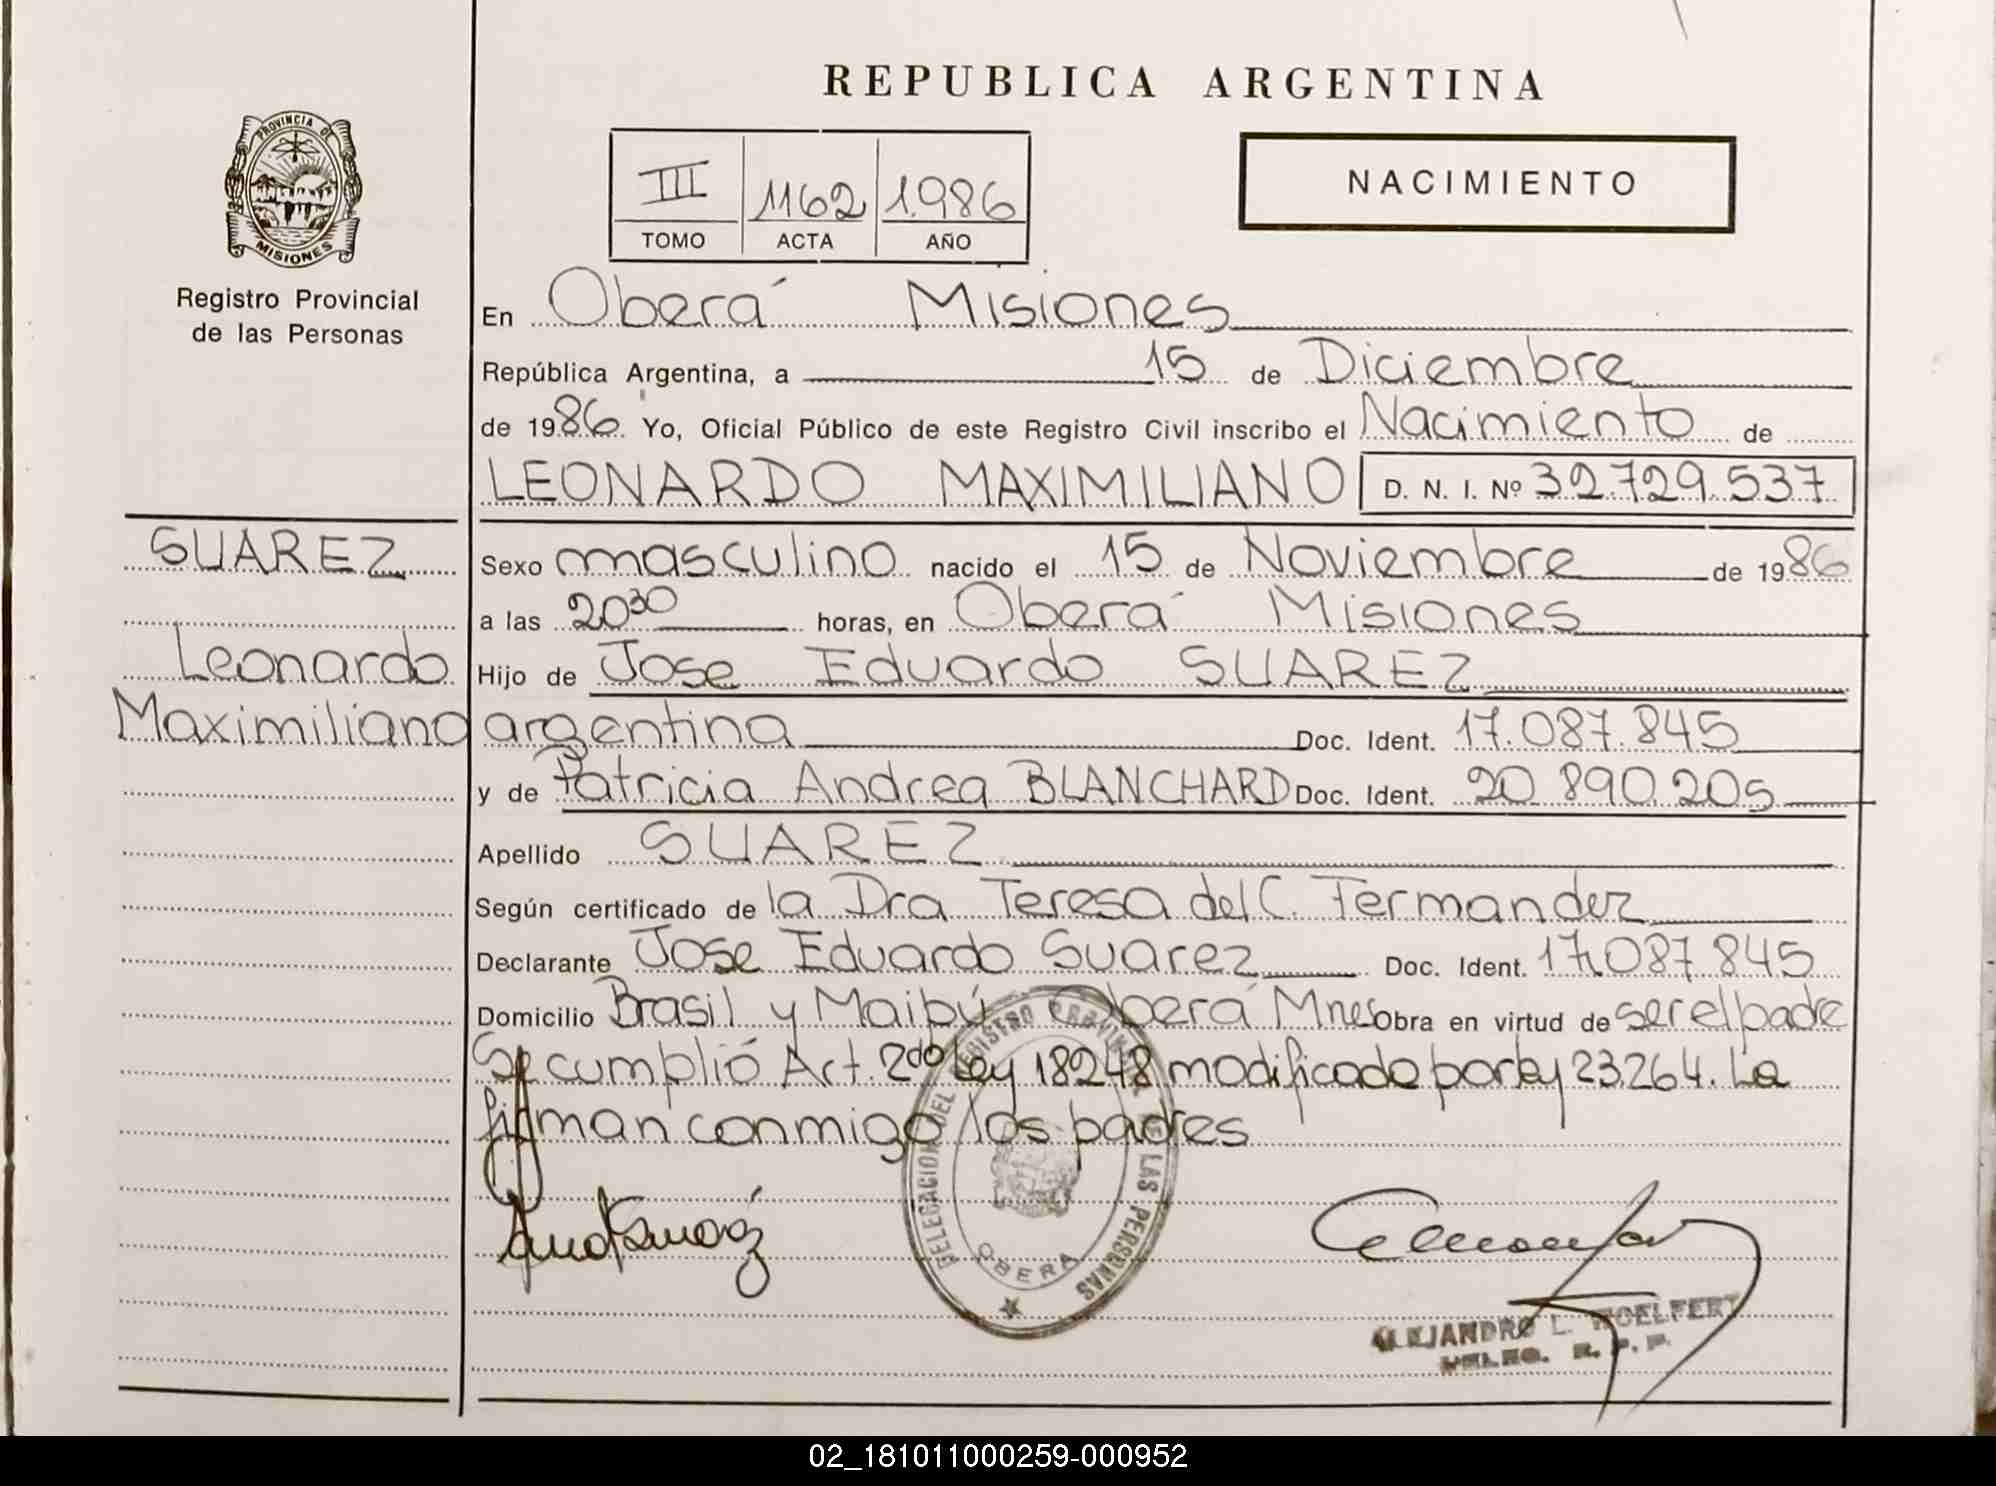 REPUBLICA ARGENTINA
PROVINCIA DE
MISIONES
Registro Provincial
de las Personas
III 1162 1.986
TOMO ACTA AÑO
NACIMIENTO
En Oberá Misiones
República Argentina, a 15 de Diciembre
de 1986 Yo, Oficial Público de este Registro Civil inscribo el Nacimiento de
LEONARDO MAXIMILIANO D. N. I. Nº 32.729.537
SUAREZ
Leonardo
Maximiliano
Sexo masculino nacido el 15 de Noviembre de 1986
a las 20³⁰ horas, en Oberá Misiones
Hijo de Jose Eduardo SUAREZ
argentina Doc. Ident. 17.087.845
y de Patricia Andrea BLANCHARD Doc. Ident. 20.890.205
Apellido SUAREZ
Según certificado de la Dra Teresa del C. Fermandez
Declarante Jose Eduardo Suarez Doc. Ident. 17.087.845
Domicilio Brasil y Maibú Oberá Mnes Obra en virtud de ser el padre
Se cumplió Art. 2do Ley 18248 modificado por ley 23.264. La
firman conmigo los padres
DELEGACION DEL REGISTRO PROVINCIAL DE LAS PERSONAS
OBERA
ALEJANDRO L. WOELFERT
DELEG. R. P. P.
02_181011000259-000952